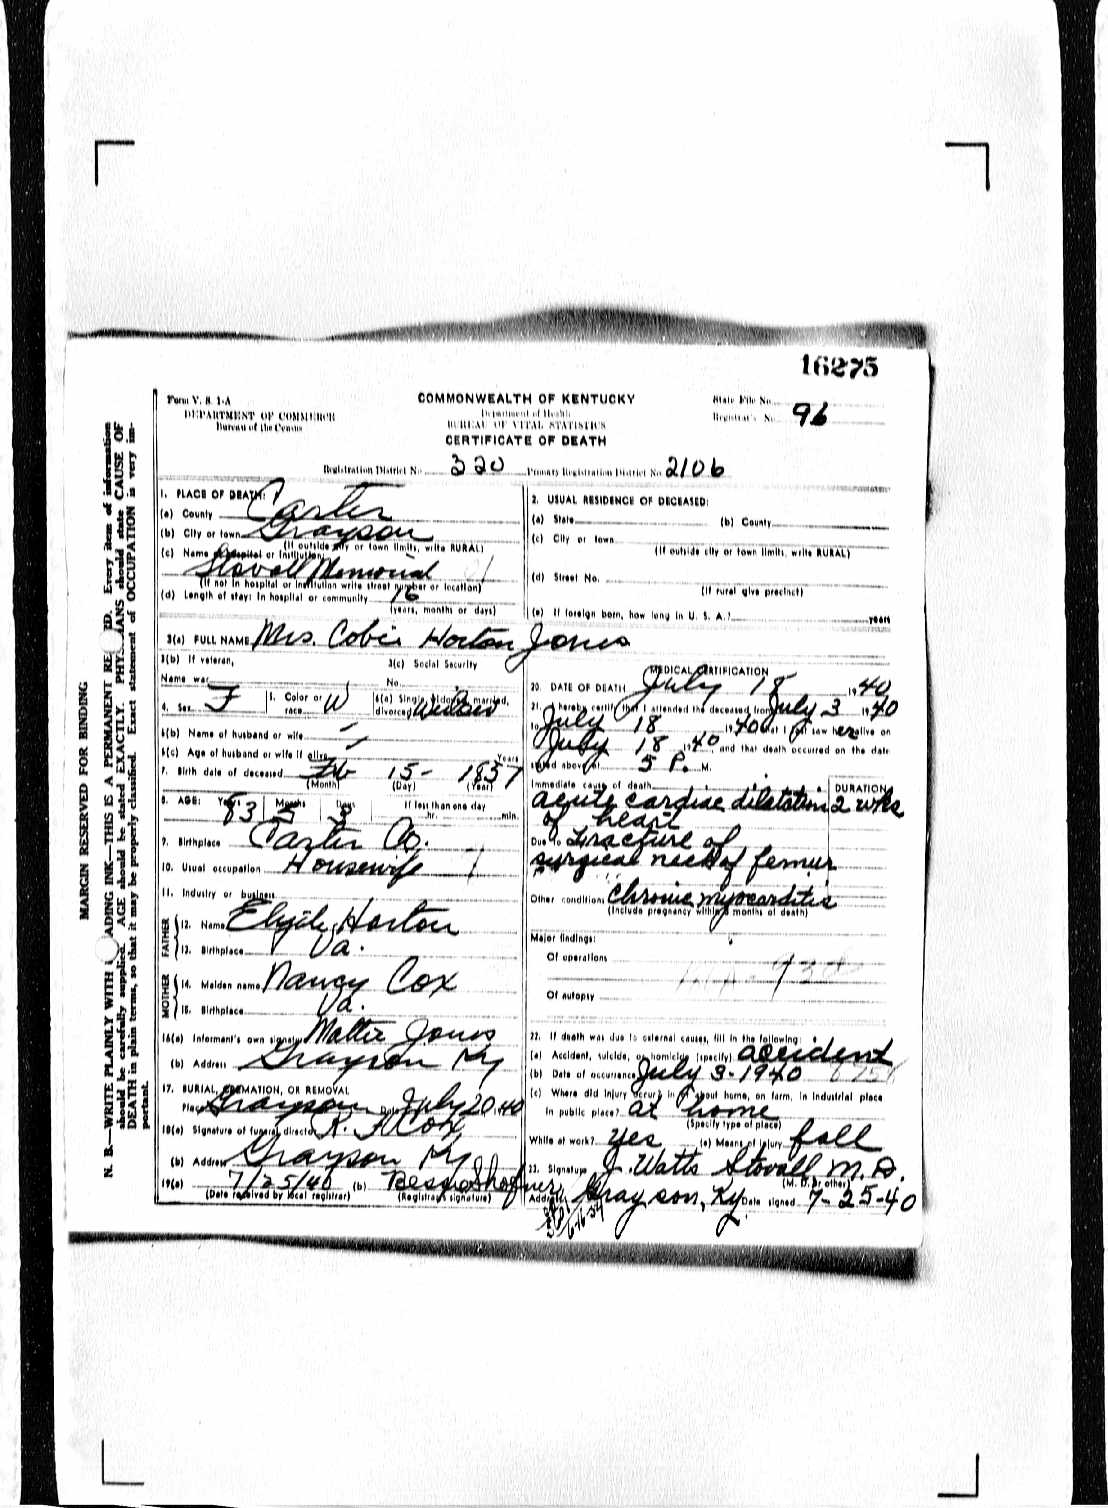 16275
Form V. S. 1-A
DEPARTMENT OF COMMERCE
Bureau of the Census
COMMONWEALTH OF KENTUCKY
Department of Health
BUREAU OF VITAL STATISTICS
CERTIFICATE OF DEATH
State File No.
Registrar's No. 96
Registration District No. 320 Primary Registration District No. 2106
MARGIN RESERVED FOR BINDING
N. B.—WRITE PLAINLY WITH ADING INK—THIS IS A PERMANENT RE D. Every item of information
should be carefully supplied. AGE should be stated EXACTLY. PHY IANS should state CAUSE OF
DEATH in plain terms, so that it may be properly classified. Exact statement of OCCUPATION is very im-
portant.
1. PLACE OF DEATH:
(a) County Carter
(b) City or town Grayson
(If outside city or town limits, write RURAL)
(c) Name of hospital or institution:
Stovall Memorial
(If not in hospital or institution write street number or location)
(d) Length of stay: In hospital or community 16
(years, months or days)
2. USUAL RESIDENCE OF DECEASED:
(a) State (b) County
(c) City or town
(If outside city or town limits, write RURAL)
(d) Street No.
(If rural give precinct)
(e) If foreign born, how long in U. S. A.? years
3(a) FULL NAME Mrs. Cobie Horton Jones
3(b) If veteran, 3(c) Social Security
Name war No.
4. Sex F 5. Color or race W 6(a) Single, widowed, married, divorced Widow
6(b) Name of husband or wife
6(c) Age of husband or wife if alive Years
7. Birth date of deceased Feb 15- 1857
(Month) (Day) (Year)
8. AGE: Years 83 Months 5 Days 3 If less than one day
hr. min.
9. Birthplace Carter Co.
10. Usual occupation Housewife
11. Industry or business
FATHER
12. Name Horton
13. Birthplace Va.
MOTHER
14. Maiden name Nancy Cox
15. Birthplace Va.
16(a) Informant's own signature Jones
(b) Address Grayson Ky
17. BURIAL, CREMATION, OR REMOVAL
Place Grayson Date July 20 1940
18(a) Signature of funeral director R. F. Cox
(b) Address Grayson Ky
19(a) 7/25/40 (b) Bess Shofner
(Date received by local registrar) (Registrar's signature)
MEDICAL CERTIFICATION
20. DATE OF DEATH July 18 1940
21. I hereby certify that I attended the deceased from July 3 1940
to July 18 1940 that I last saw her alive on
July 18 1940, and that death occurred on the date
stated above at 5 P. M.
Immediate cause of death DURATION
acute cardiac dilatation 2 wks
of heart
Due to Fracture of
surgical neck of femur
Other conditions Chronic myocarditis
(Include pregnancy within 3 months of death)
Major findings:
Of operations
Of autopsy
22. If death was due to external causes, fill in the following:
(a) Accident, suicide, or homicide (specify) accident
(b) Date of occurrence July 3-1940
(c) Where did injury occur; in or about home, on farm, in industrial place
in public place? at home
(Specify type of place)
While at work? yes (e) Means of Injury fall
23. Signature J. Watts Stovall M. D.
(M. D. or other)
Address Grayson, Ky Date signed 7-25-40